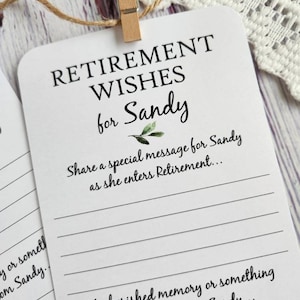 RETIREMENT
WISHES
for Sandy
Share a special message for Sandy
as she enters Retirement...
cherished memory or something
Sandy
y or something
om Sandy.